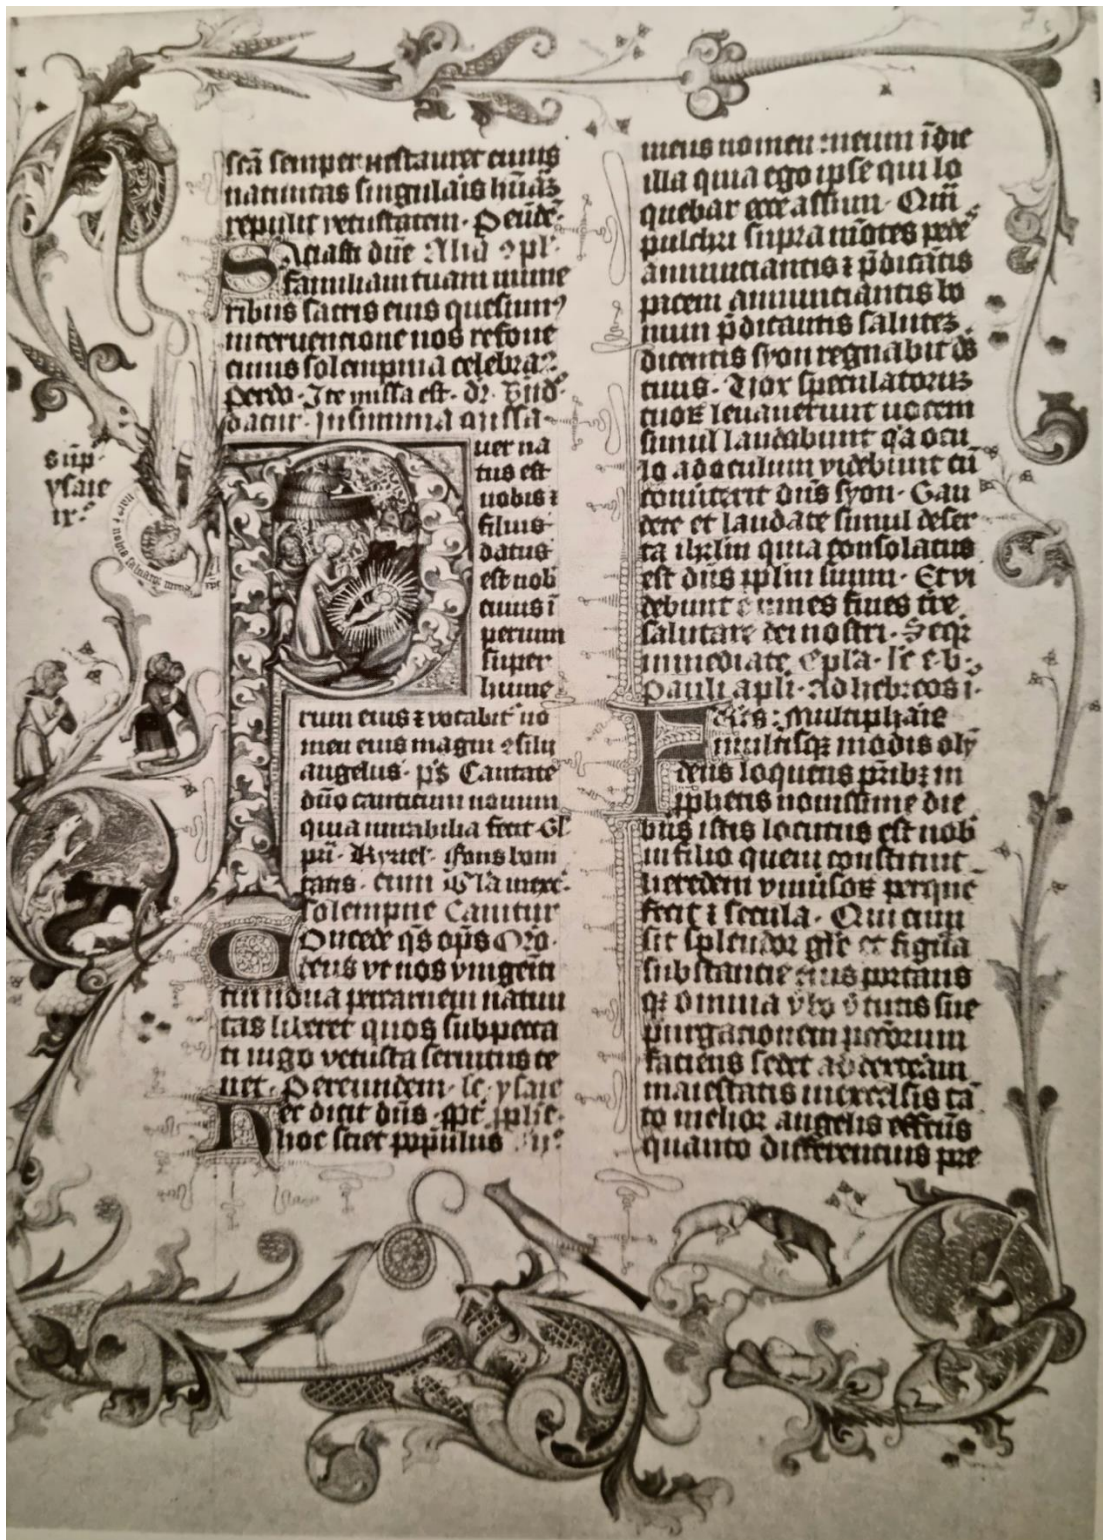 scā semper restauret cuius
natiuitas singularis hūāā
repulit vetustatem · Per eūdē
Saciasti dn̄e Alia ꝯpl·
familiam tuam mune
ribus sacris eius quesum9
interuencione nos refoue
cuius solempnia celebra
perdo · Ite missa est · dr̄
datur · in summa missa
sup·
ysaie
ix·
Puer na
tus est
nobis ⁊
filius
datus
est nob
cuius ī
perium
super
hume
rum eius ⁊ vocabit' no
men eius magni ꝯsilij
angelus · ps̄ Cantate
dn̄o canticum nouum
quia mirabilia fecit · Gl·
pri · Kyriel· fons boni
tatis · cum
solempne Canitur
Concede qs̄ op̄s
deus vt nos vnigeniti
tui noua per carnem natiui
tas liberet quos sub pecca
ti iugo vetusta seruitus te
net · Per eundem · lc̄· ysaie
Hec dicit dn̄s · ꝓph̄e·
hoc sciet populus
meus nomen meum ī die
illa quia ego ipse qui lo
quebar ecce assum · Qm̄
pulchri supra mōtes pede
annunciantis ⁊ p̄dicātis
pacem annunciantis bo
num p̄dicantis salutē
dicentis syon regnabit ds̄
tuus · Vox speculatorum
tuoꝝ leuauerunt uocem
simul laudabunt q̇a ocu
lo ad oculum videbunt cū
conuerterit dn̄s syon · Gau
dete et laudate simul deser
ta ihrlm quia consolatus
est dn̄s pplm suum · Et vi
debunt omnes fines tr̄e
salutare dei nostri · Seqr̄
immediate epl̄a · lc̄ e· b·
Pauli apl̄i · ad hebreos i·
Frēs : Multipharie
multisqꝫ modis oli
deus loquens pr̄ibꝫ in
ꝓphetis nouissime die
bus istis locutus est nob
in filio quem constituit
heredem vniuersoꝝ per que
fecit ⁊ secula · Qui cum
sit splendor gl̄ie et figura
substancie eius portans
qꝫ omnia v̄bo v̄tutis sue
purgacionem peccatorum
faciens sedet ad dexteram
maiestatis in excelsis tā
to melior angelis effectus
quanto differencius pre